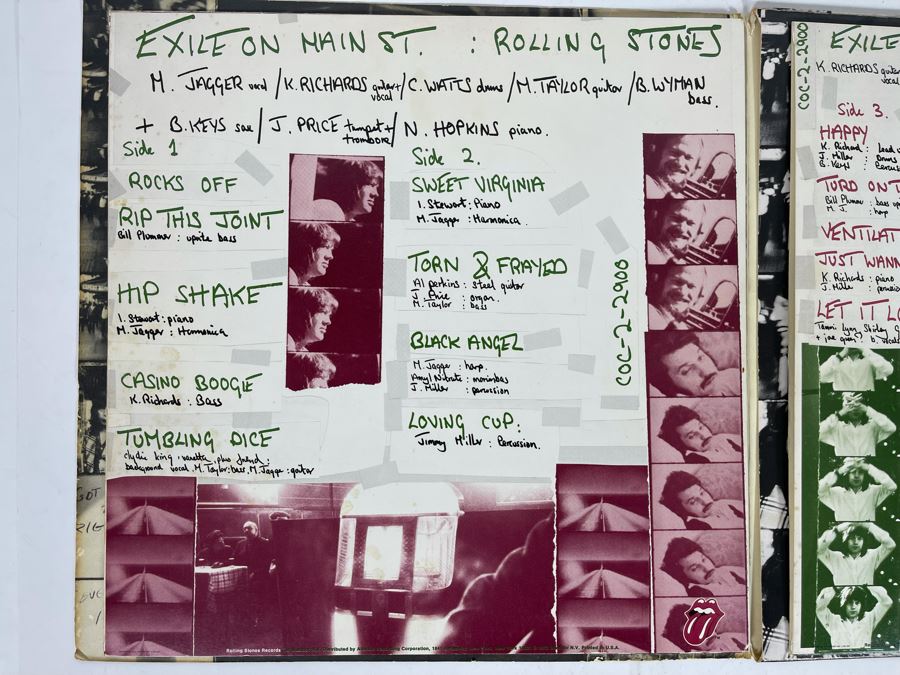 EXILE ON MAIN ST. : ROLLING STONES
M. JAGGER vocal / K. RICHARDS guitar + vocal / C. WATTS drums / M. TAYLOR guitar / B. WYMAN bass.
+ B. KEYS sax / J. PRICE trumpet + trombone / N. HOPKINS piano.
Side 1
ROCKS OFF
RIP THIS JOINT
Bill Plummer : uprite bass
HIP SHAKE
I. Stewart : piano
M. Jagger : Harmonica
CASINO BOOGIE
K. Richards : Bass
TUMBLING DICE
clydie king, vanetta, plus friend :
background vocal. M. Taylor : bass, M. Jagger : guitar
Side 2.
SWEET VIRGINIA
I. Stewart : Piano
M. Jagger : Harmonica.
TORN & FRAYED
Al perkins : steel guitar
J. Price : organ.
M. Taylor : bass
BLACK ANGEL
M. Jagger : harp.
Amyl Nitrate : marimbas
J. Miller : percussion
LOVING CUP :
Jimmy Miller : Percussion.
COC-2-2900
Rolling Stones Records
Distributed by
Corporation,
N.V. Printed in U.S.A.
COC-2-2900
EXILE
K. RICHARDS
vocal
Side 3.
HAPPY
K. Richard : Lead
J. Miller : Drums
B. Keys :
TURD ON T
Bill Plummer : bass
M. J. : harp
VENTILAT
JUST WANN
K. Richards : piano
J. Miller :
LET IT LO
Tammi Lynn, Shirley G
+ joe green : b. vocals